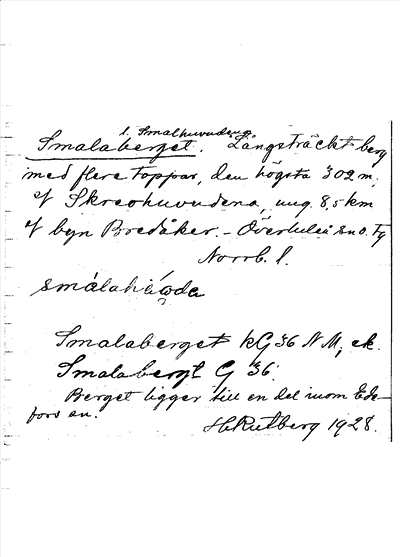 l. Smalhuvudena
Smalaberget. Långsträckt berg
med flere toppar, den högsta 302 m,
af Skreohuvudena, ung. 8,5 km
af byn Bredåker. – Överluleå sn
Norrb. l.
Smalaberget kG 36 NM, ek.
Smalabergt G 36.
Berget ligger till en del inom Ede-
fors sn.
H. Rutberg 1928.